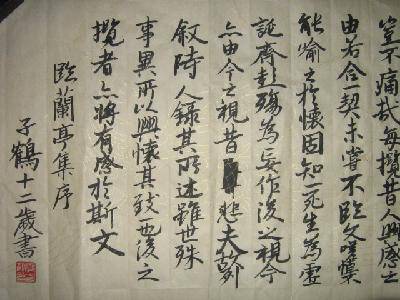 豈不痛哉每攬昔人興感之
由若合一契未嘗不臨文嗟悼
能喻之於懷固知一死生為虛
誕齊彭殤為妄作後之視今
亦由今之視昔悲夫故列
敘時人錄其所述雖世殊
事異所以興懷其致一也後之
攬者亦將有感於斯文
臨蘭亭集序
子鶴十二歲書